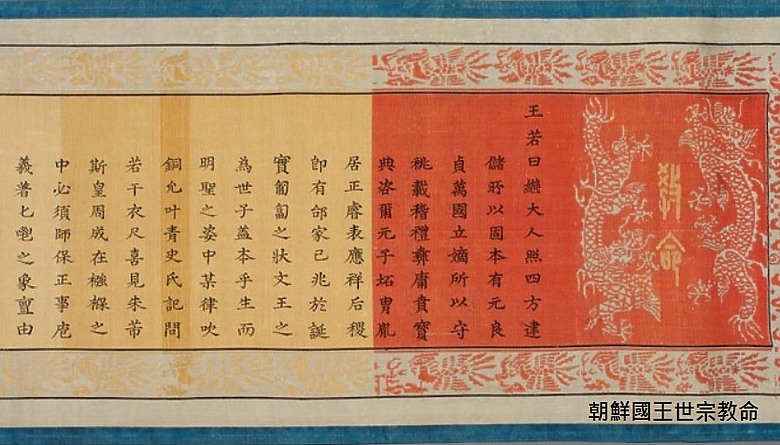 敎命
王若曰繼大人照四方建
儲所以固本有元良
貞萬國立嫡所以守
祧載稽禮彝庸賁寶
典咨爾元子坧冑胤
居正睿表應祥后稷
卽有邰家已兆於誕
實匍匐之狀文王之
為世子蓋本乎生而
明聖之姿中某律吹
銅允叶青史氏記問
若干衣尺喜見朱芾
斯皇周成在襁褓之
中必須師保正事庖
羲著匕鬯之象亶由
朝鮮國王世宗教命